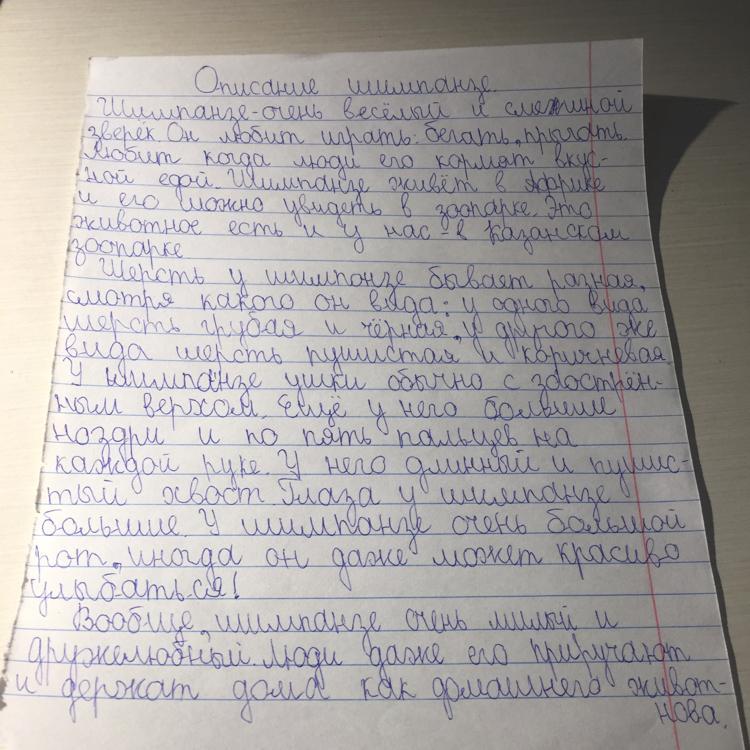 Описание шимпанзе.
Шимпанзе-очень весёлый и смешной
зверёк. Он любит играть: бегать, прыгать.
Любит когда люди его кормят вкус-
ной едой. Шимпанзе живёт в Африке
и его можно увидеть в зоопарке. Это
животное есть и у нас - в Казанском
зоопарке
Шерсть у шимпанзе бывает разная,
смотря какого он вида: у одного вида
шерсть грубая и чёрная, у другого же
вида шерсть пушистая и коричневая
У шимпанзе ушки обычно с заострён-
ным верхом. Ещё у него большие
ноздри и по пять пальцев на
каждой руке. У него длинный и пушис-
тый хвост. Глаза у шимпанзе
большие. У шимпанзе очень большой
рот, иногда он даже может красиво
улыбаться!
Вообще, шимпанзе очень милый и
дружелюбный. Люди даже его приручают
и держат дома как домашнего живот-
нова.